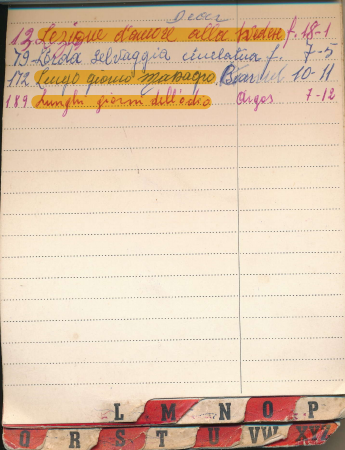 Oscar
13 Lezione d'amore alla f. 18-1
79 L'orda selvaggia cinelatina f. 7-5
172 Lungo giorno massacro 10-11
189 Lunghi giorni dell'odio Orgos 7-12
L M N O P
Q R S T U VW XYZ